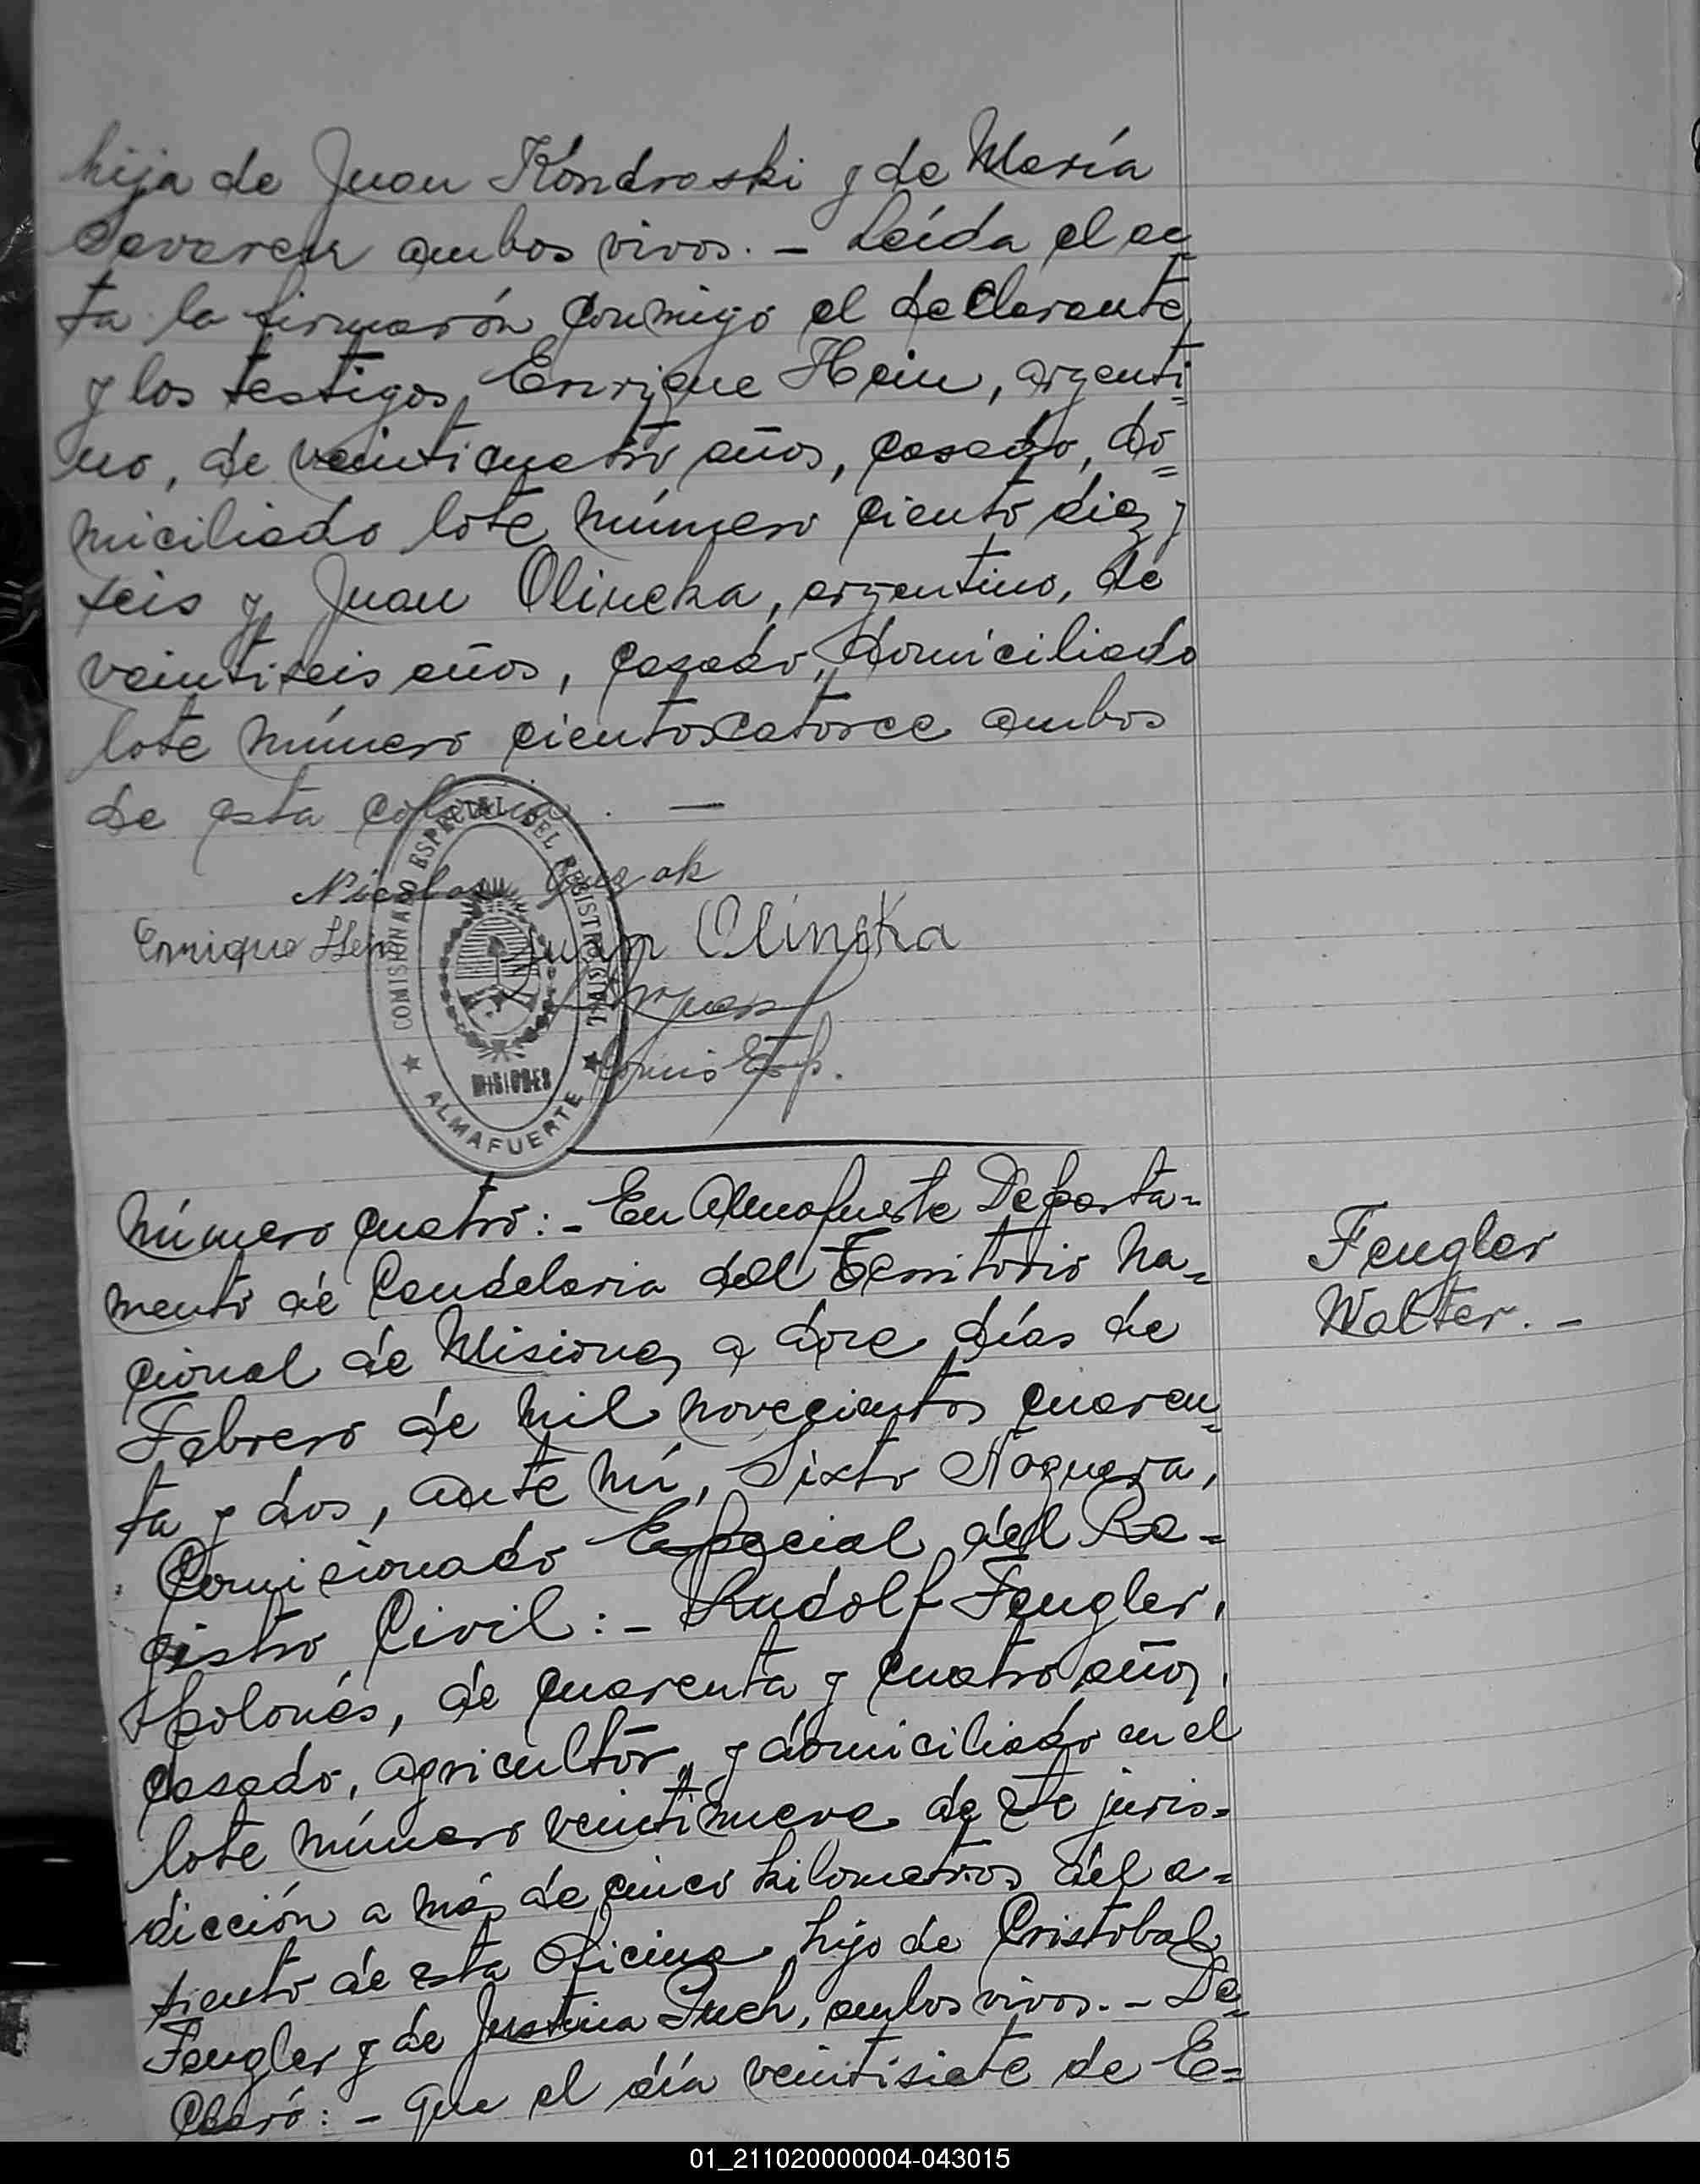 hija de Juan Kondroski y de María
ambos vivos. - Leída el ac=
ta la firmarón conmigo el declarante
y los testigos, Enrique Hein, argenti=
no, de veinticuatro años, casado, do=
miciliado lote número ciento diez y
seis y Juan Olincka, argentino, de
veintiseis años, casado, domiciliado
lote número ciento catorce ambos
de esta colonia. —
Nicolas
Enrique Hein Juan Olincka
Comis Esp.
COMISIONADO ESPECIAL DEL REGISTRO CIVIL
MISIONES
★ ALMAFUERTE ★
Número cuatro: - En Almafuerte Departa=
mento de Candelaria del Territorio Na=
cional de Misiones, a doce días de
Febrero de mil novecientos cuaren=
ta y dos, ante mí, Sixto Noguera,
Comisionado Especial del Re=
gistro Civil: - Rudolf Feugler,
polonés, de cuarenta y cuatro años,
casado, agricultor, y domiciliado en el
lote número veintinueve de esta juris=
dicción a más de cinco kilometros del a=
siento de esta oficina hijo de Cristobal
Feugler y de Justina Tuch, ambos vivos. - De=
claró: - que el día veintisiete de E=
Feugler
Walter. -
01_211020000004-043015